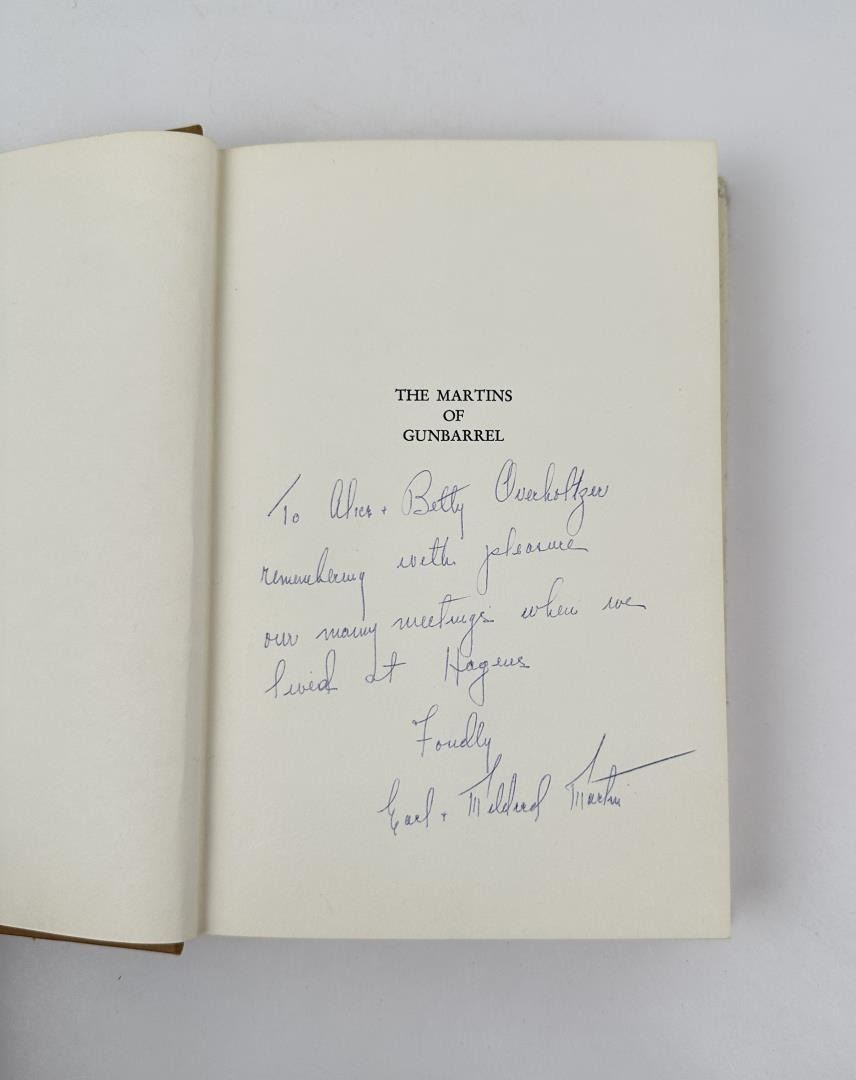 THE MARTINS
OF
GUNBARREL
To Alice + Betty Overholtzer
remembering with pleasure
our many meetings when we
lived at Hagens
Fondly
Earl + Mildred Martin